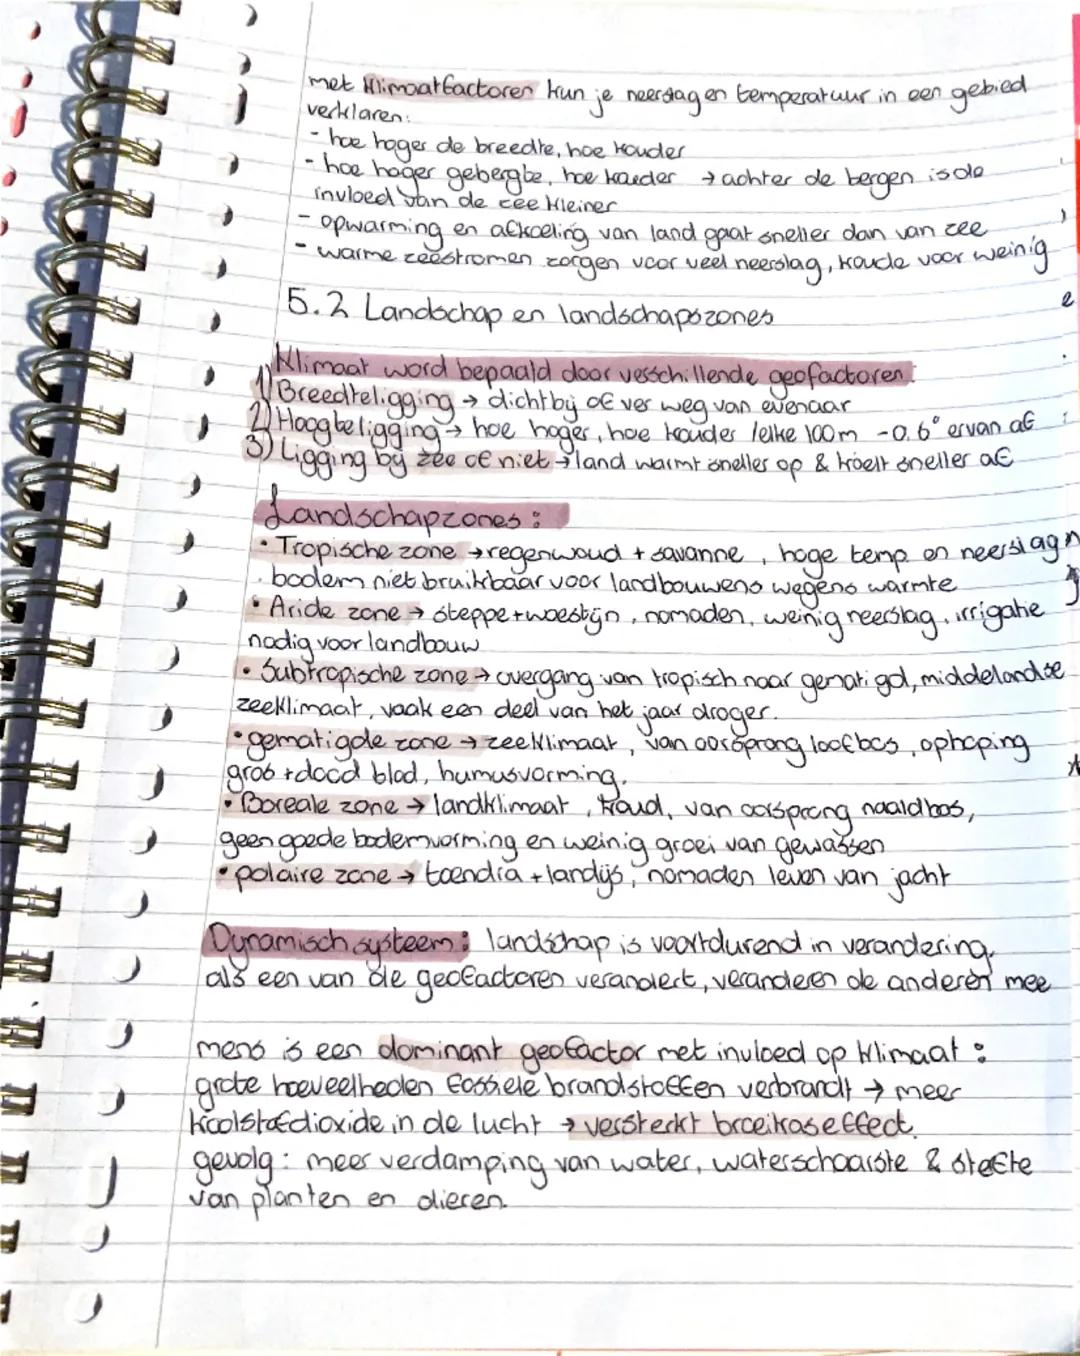 met klimaatfactoren kun je neerslag en temperatuur in een gebied
verklaren:
- hoe hoger de breedte, hoe kouder
- hoe hoger gebergte, hoe kouder → achter de bergen is de
invloed van de zee kleiner
- opwarming en afkoeling van land gaat sneller dan van zee
- warme zeestromen zorgen voor veel neerslag, koude voor weinig
5.2 Landschap en landschapszones
Klimaat word bepaald door verschillende geofactoren:
1) Breedteligging → dichtbij of ver weg van evenaar
2) Hoogteligging → hoe hoger, hoe kouder /elke 100m -0,6° ervan af
3) Ligging bij zee of niet → land warmt sneller op & koelt sneller af
Landschapzones:
• Tropische zone → regenwoud + savanne, hoge temp en neerslag
bodem niet bruikbaar voor landbouwens wegens warmte
• Aride zone → steppe + woestijn, nomaden, weinig neerslag, irrigatie
nodig voor landbouw
• Subtropische zone → overgang van tropisch naar gematigd, middelandse
zeeklimaat, vaak een deel van het jaar droger.
• gematigde zone → zeeklimaat, van oorsprong loofbos, ophoping
gras + dood blad, humusvorming.
• Boreale zone → landklimaat, koud, van oorsprong naaldbos,
geen goede bodemvorming en weinig groei van gewassen
• polaire zone → toendra + landijs, nomaden leven van jacht
Dynamisch systeem: landschap is voortdurend in verandering.
als een van de geofactoren verandert, veranderen de anderen mee
mens is een dominant geofactor met invloed op klimaat:
grote hoeveelheden fossiele brandstoffen verbrandt → meer
koolstofdioxide in de lucht → versterkt broeikaseffect.
gevolg: meer verdamping van water, waterschaarste & sterfte
van planten en dieren.